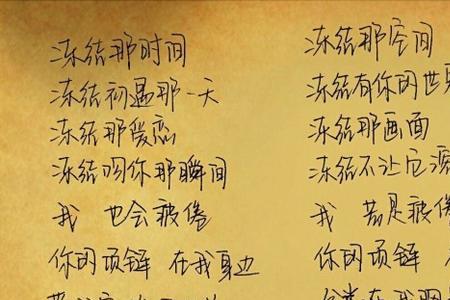 冻结那时间
冻结初遇那一天
冻结那爱恋
冻结吻你那瞬间
我 也会疲倦
你的项链 在我身边
冻结那空间
冻结有你的世界
冻结那画面
冻结不让它
我 若是疲倦
你的项链